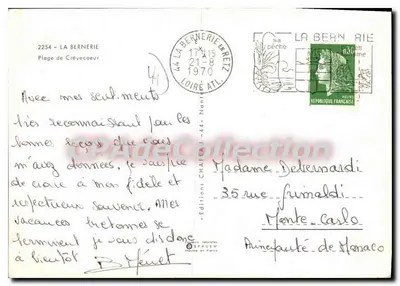 2254 - LA BERNERIE
Plage de Crèvecoeur
44 LA BERNERIE EN RETZ
17H15
21-8
1970
LOIRE ATL.
LA BERNERIE
sa
pêche
0,30
REPUBLIQUE FRANCAISE
Avec mes sentiments
très reconnaissant pour les
bonnes leçons que vous
m'avez données, je vous prie
de croire à mon fidèle et
respectueux souvenir. Mes
vacances bretonnes se
terminent je vous dis donc
à bientôt
B Menet
Editions CHAPEAU - 44 - Nantes
Madame Debernardi
35 rue Grimaldi
Monte-Carlo
Principauté de Monaco
SPADEM
Collection